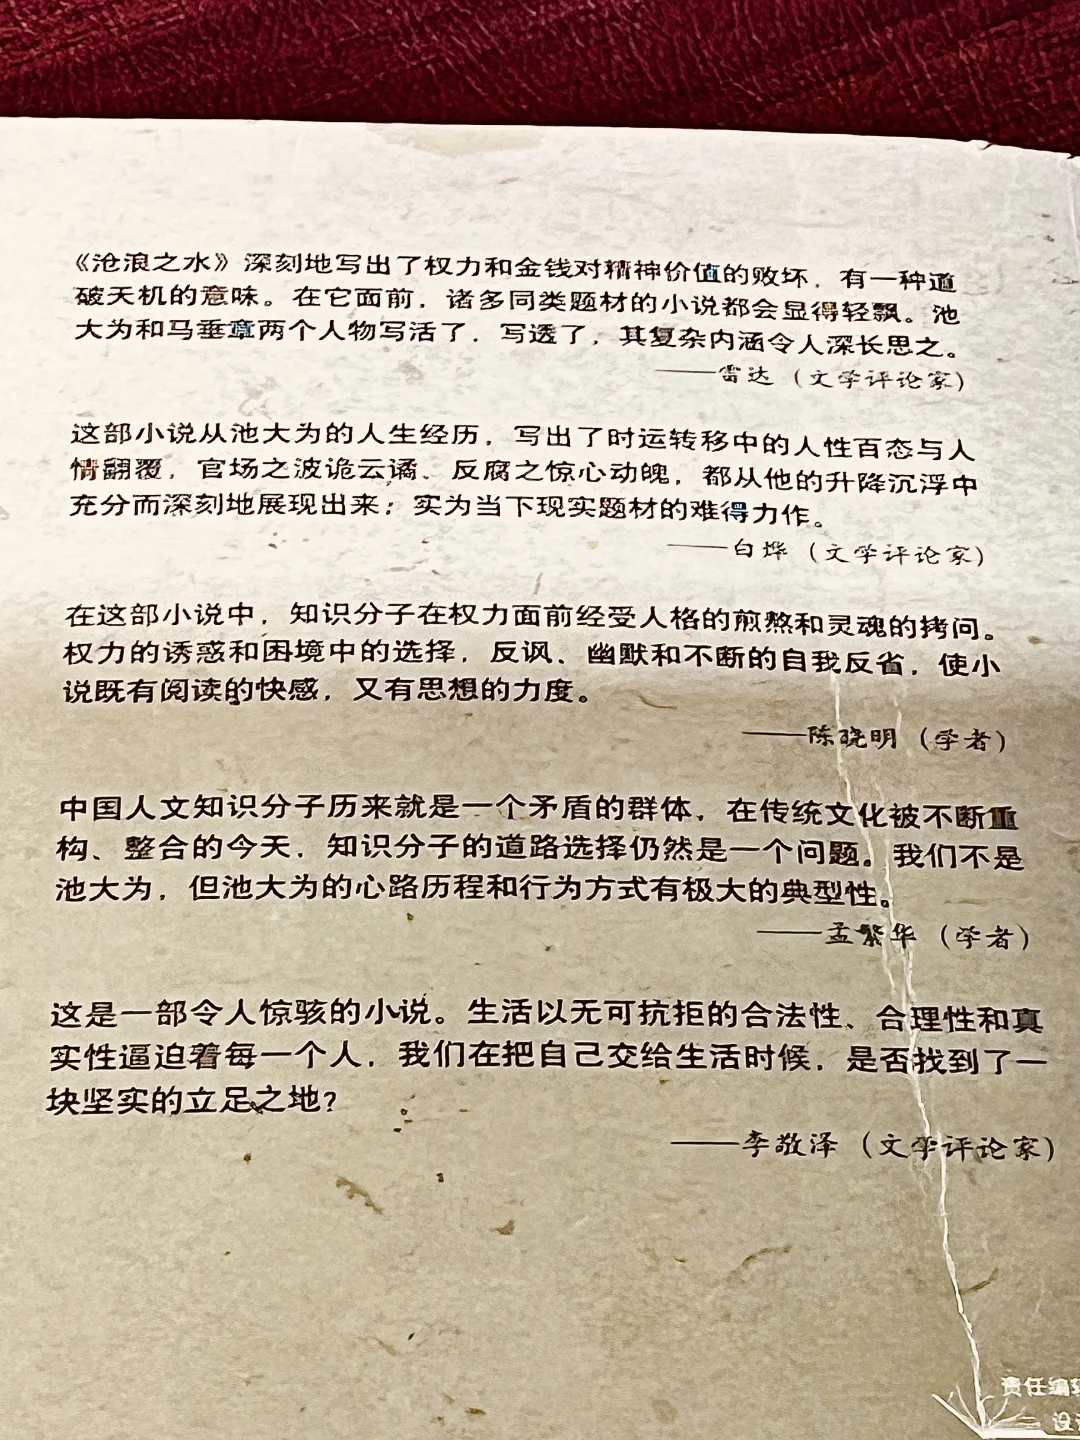 《沧浪之水》深刻地写出了权力和金钱对精神价值的败坏，有一种道
破天机的意味。在它面前，诸多同类题材的小说都会显得轻飘。池
大为和马垂章两个人物写活了，写透了，其复杂内涵令人深长思之。
——雷达（文学评论家）
这部小说从池大为的人生经历，写出了时运转移中的人性百态与人
情翻覆，官场之波诡云谲、反腐之惊心动魄，都从他的升降沉浮中
充分而深刻地展现出来；实为当下现实题材的难得力作。
——白烨（文学评论家）
在这部小说中，知识分子在权力面前经受人格的煎熬和灵魂的拷问。
权力的诱惑和困境中的选择，反讽、幽默和不断的自我反省，使小
说既有阅读的快感，又有思想的力度。
——陈晓明（学者）
中国人文知识分子历来就是一个矛盾的群体，在传统文化被不断重
构、整合的今天，知识分子的道路选择仍然是一个问题。我们不是
池大为，但池大为的心路历程和行为方式有极大的典型性。
——孟繁华（学者）
这是一部令人惊骇的小说。生活以无可抗拒的合法性、合理性和真
实性逼迫着每一个人，我们在把自己交给生活时候，是否找到了一
块坚实的立足之地？
——李敬泽（文学评论家）
责任编辑
设